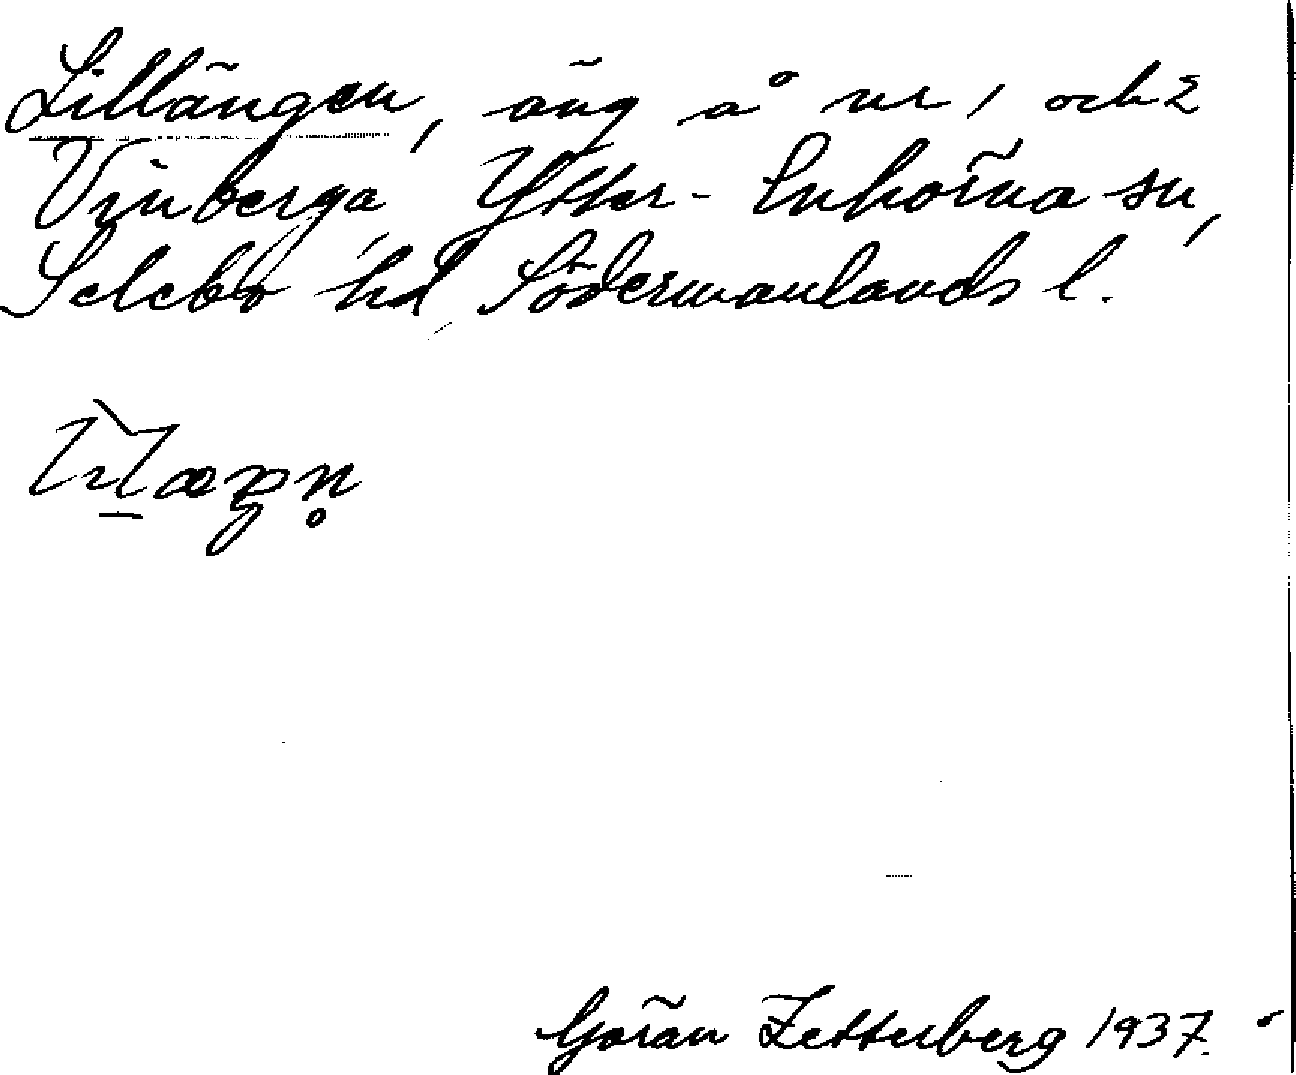 Lillängen, äng å nr 1 och 2
Vinberga, Ytter-Enhörna sn,
Selebo hd, Södermanlands l.
Göran Zetterberg 1937.